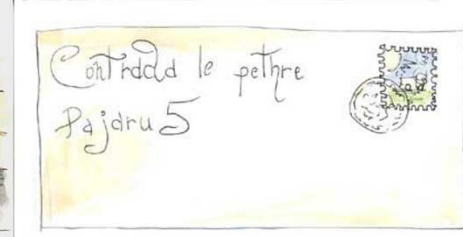 Contrada le pethre
Pajaru 5